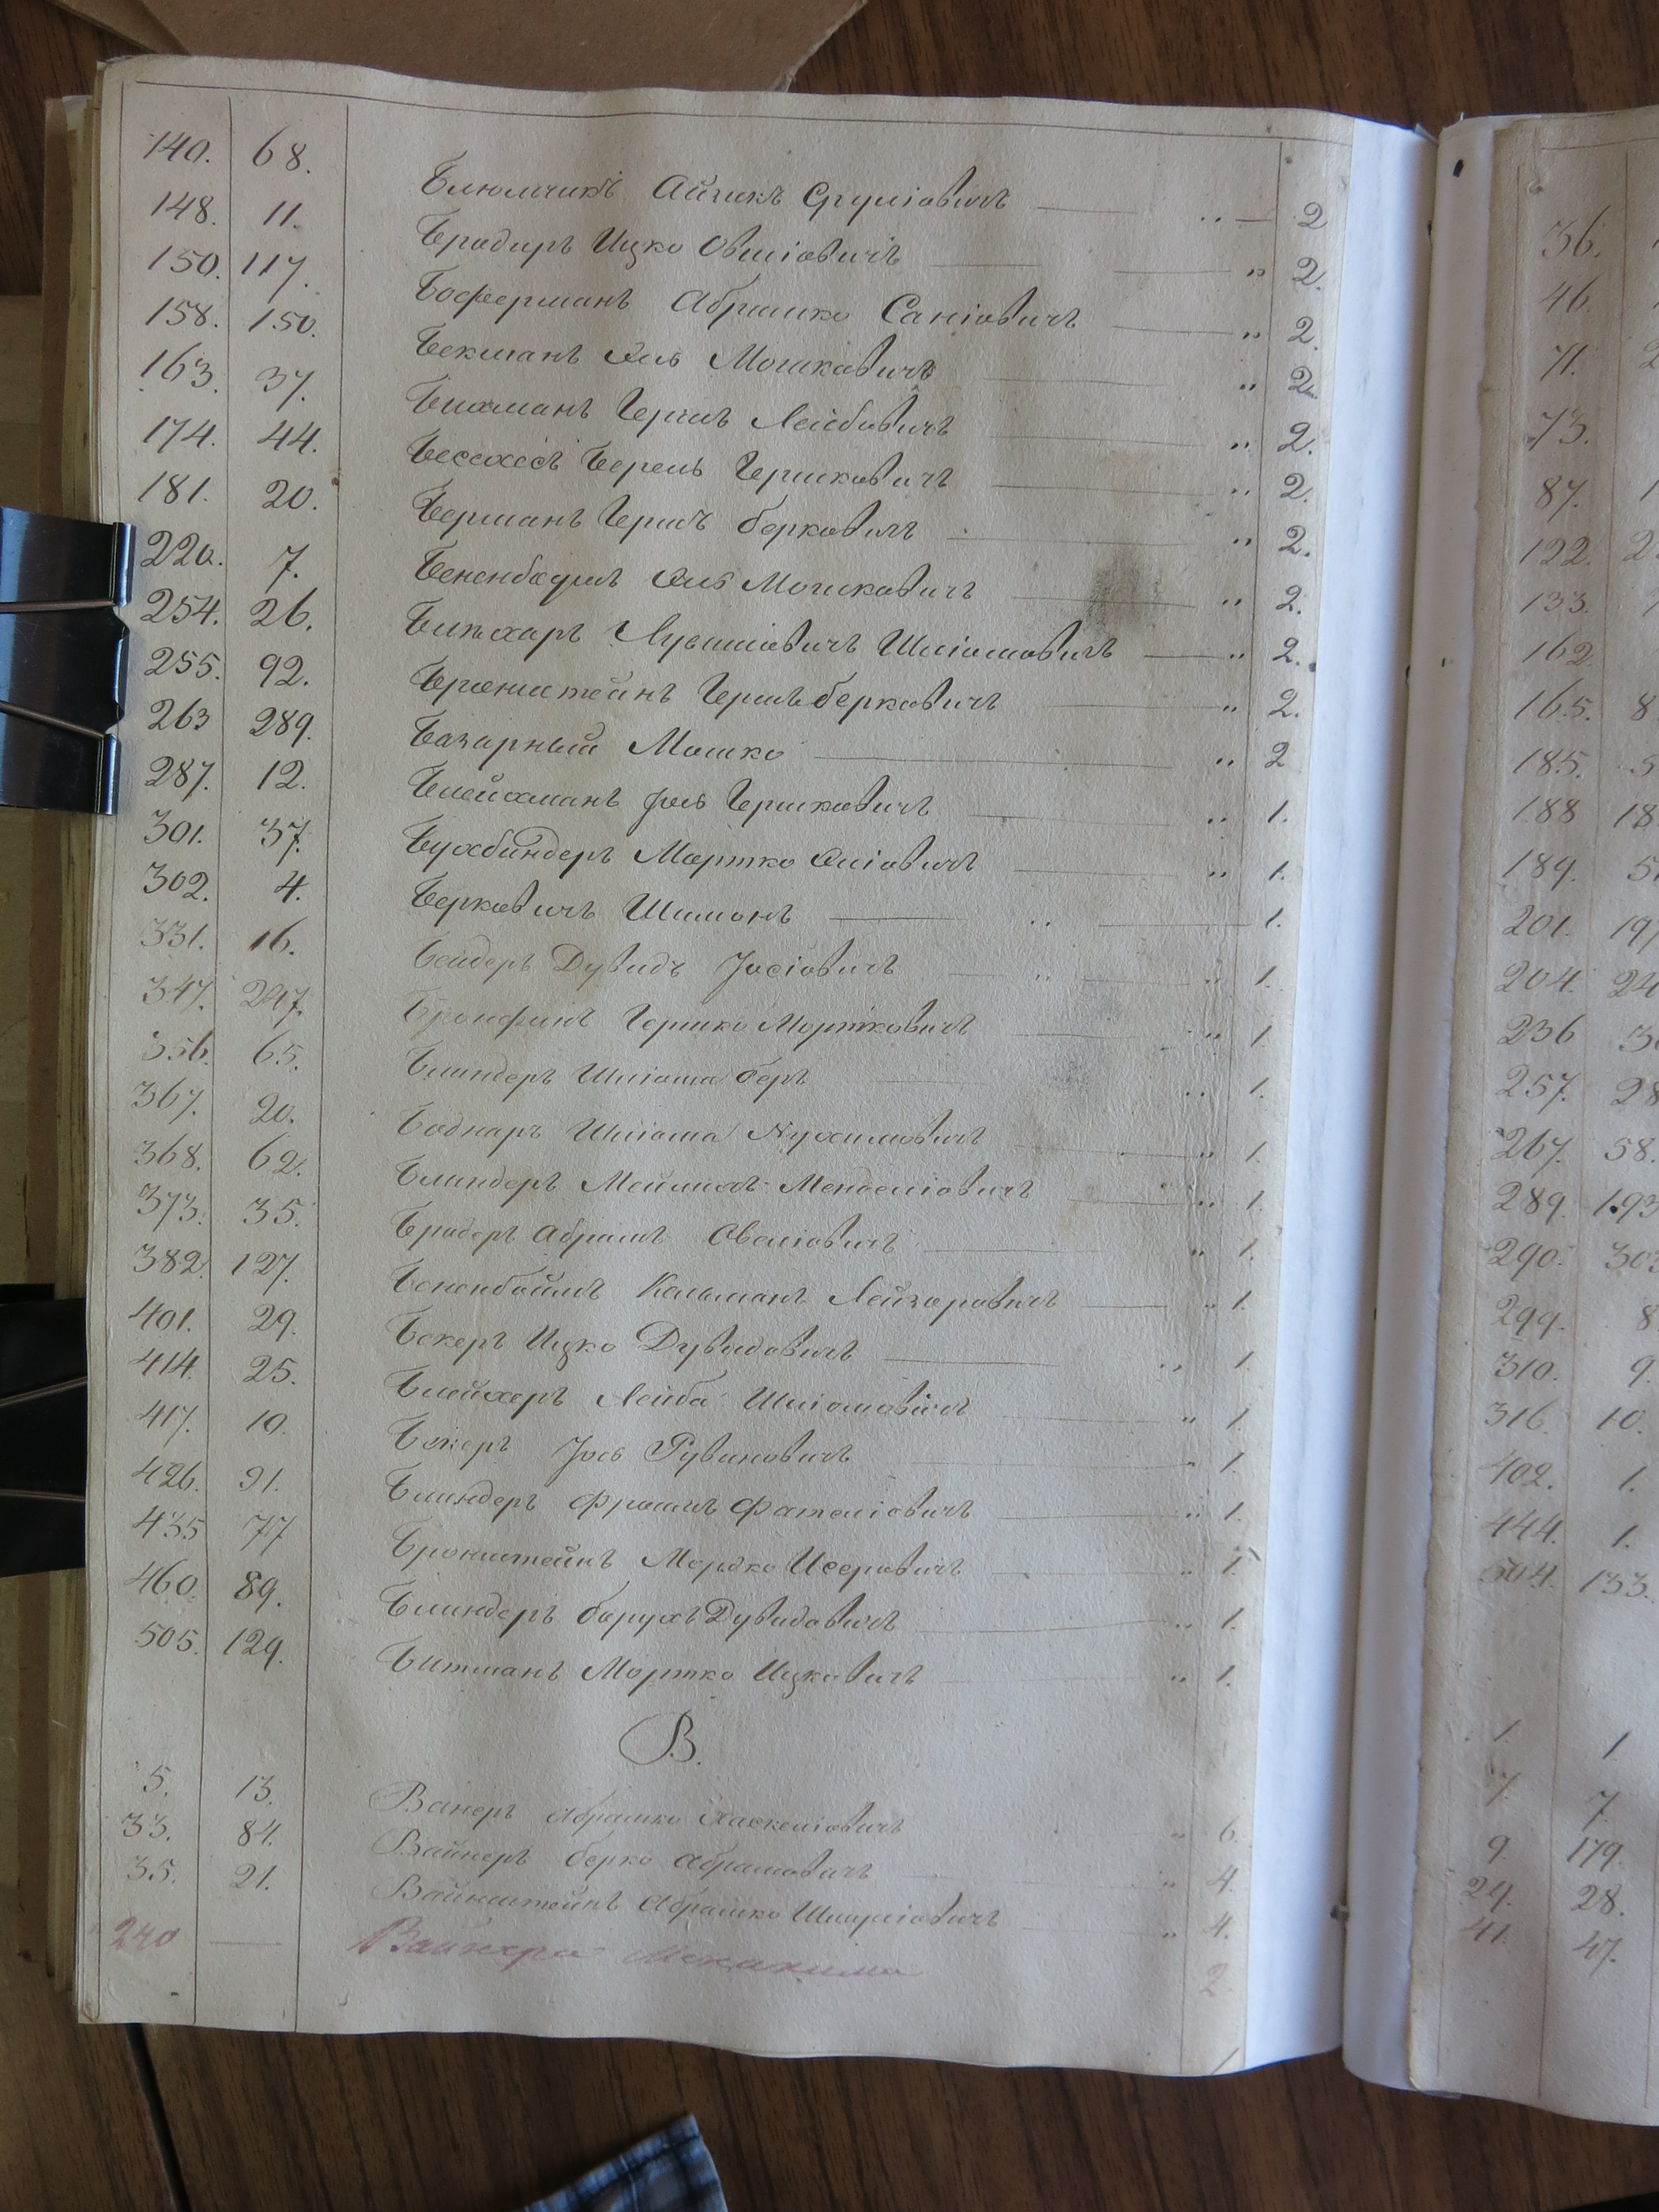 140. 68. Блюмчикъ Айзикъ Сруліовичъ „ 2
148. 11. Бродиръ Ицко Овшіовичъ „ 2.
150. 117. Бофферманъ Абрашко Саніовичъ „ 2.
158. 150. Бекманъ Мошковичъ „ 2.
163. 37. Бихманъ Гершъ Лейбовичъ „ 2.
174. 44. Берель Гершковичъ „ 2.
181. 20. Берманъ Гершъ Берковичъ „ 2.
220. 7. Мошковичъ „ 2.
254. 26. Шліомовичъ „ 2.
255. 92. Бронштейнъ Гершъ Берковичъ „ 2.
263 289. Базарный Мошко „ 2
287. 12. Блейхманъ Іось Гершковичъ „ 1.
301. 37. Бухбиндеръ Мортко Еліовичъ „ 1.
302. 4. Берковичъ Шимонъ „ 1.
331. 16. Бейдеръ Дувидъ Іосіовичъ „ 1.
347. 247. Бронфинъ Гершко Мортковичъ „ 1.
356. 65. Блиндеръ Шліома Беръ „ 1.
367. 20. Боднаръ Шліома Нухимовичъ „ 1.
368. 62. Блиндеръ Мейлихъ Менделіовичъ „ 1.
373. 35. Бродеръ Абрамъ Овшіовичъ „ 1.
382. 127. Бененбоймъ Кальманъ Лейзоровичъ „ 1.
401. 29. Бекеръ Ицко Дувидовичъ „ 1.
414. 25. Блейхеръ Лейба Шліомовичъ „ 1.
417. 10. Бекеръ Іось Рувиновичъ „ 1.
426. 91. Блиндеръ Фроимъ Фателіовичъ „ 1.
435 77 Бронштейнъ Мордко Исеровичъ „ 1.
460. 89. Блиндеръ Борухъ Дувидовичъ „ 1.
505. 129. Битманъ Мортко Ицковичъ „ 1.
В.
5. 13. Винеръ Абрашко Хаскеліовичъ „ 6.
33. 84. Вайнеръ Берко Абрамовичъ „ 4.
35. 21. Вайнштейнъ Абрашко Шмуліовичъ „ 4.
240 — 2
36.
46.
71. 2
73.
87. 1
122. 2
133.
162
165. 8
185. 5
188 18
189. 5
201. 19
204. 24
236 3
257. 28
267. 58.
289. 193
290. 303
299. 8
310. 9.
316. 10.
402. 1.
444. 1.
504. 133.
1. 1
7. 7
9. 179.
24. 28.
41. 47.